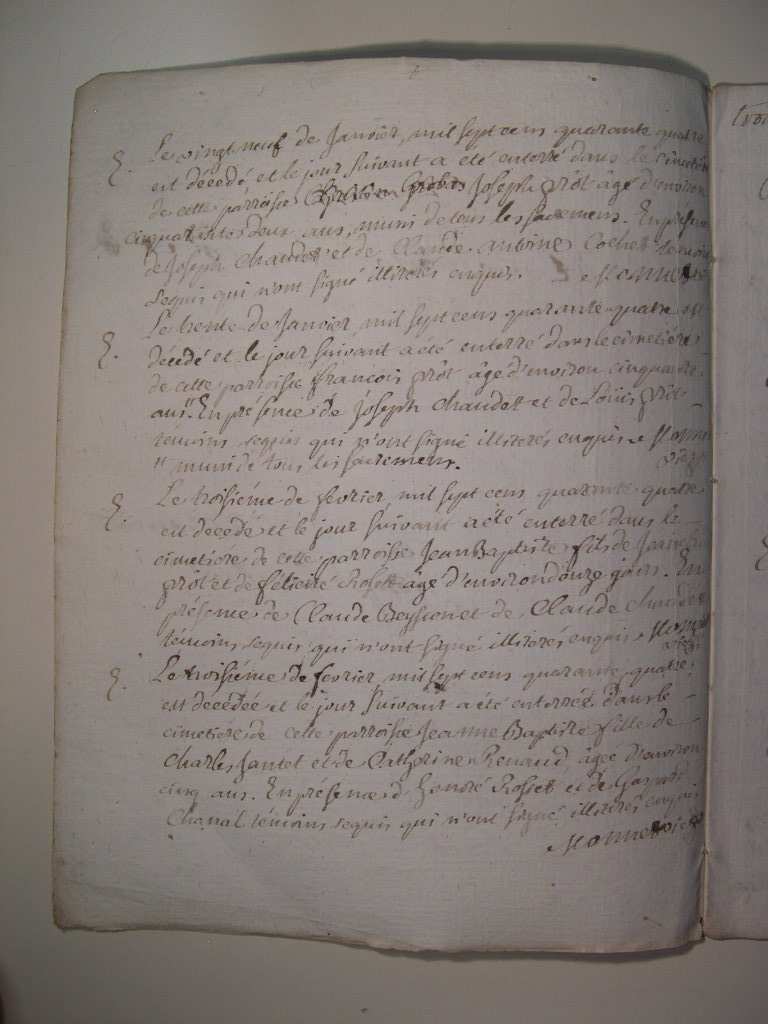 Le vingt neuf de Janvier, mil sept cens quarante quatre
est décedé, et le jour suivant a été enterré dans le cimetière
de cette parroisse Joseph prôt âgé d'environ
cinquante deux ans, muni de tous les sacremens. En présence
de Joseph Chaudet et de Claude Antoine Cochet temoins
requis qui n'ont signé illiterés enquis.
Le trente de Janvier, mil sept cens quarante quatre est
décédé et le jour suivant a été enterré dans le cimetiere
de cette parroisse francois prôt âgé d'environ cinquante
ans" En présence de joseph Chaudet et de Loüis prôt
témoins requis qui n'ont signé illiterés enquis
" muni de tous les sacremens.
Le troisiéme de fevrier mil sept cens quarante quatre
est decedé et le jour suivant a été enterré dans le
cimetiere de cette parroisse Jean Baptiste fils de
prôt et de félicité Rosset âgé d'environ douze jours. En
présence de Claude et de Claude Chaudet
témoins requis qui n'ont signé illiterés enquis
Le troisiéme de fevrier, mil sept cens quarante quatre
est decedée et le jour suivant a été enterrée dans le
cimetiere de cette parroisse Jeanne Baptiste fille de
Charles Jantet et de Catherine Renaud, âgée d'environ
cinq ans. En présence d' honoré Rosset et de Gaspard
Chanal témoins requis qui n'ont signé illiterés enquis